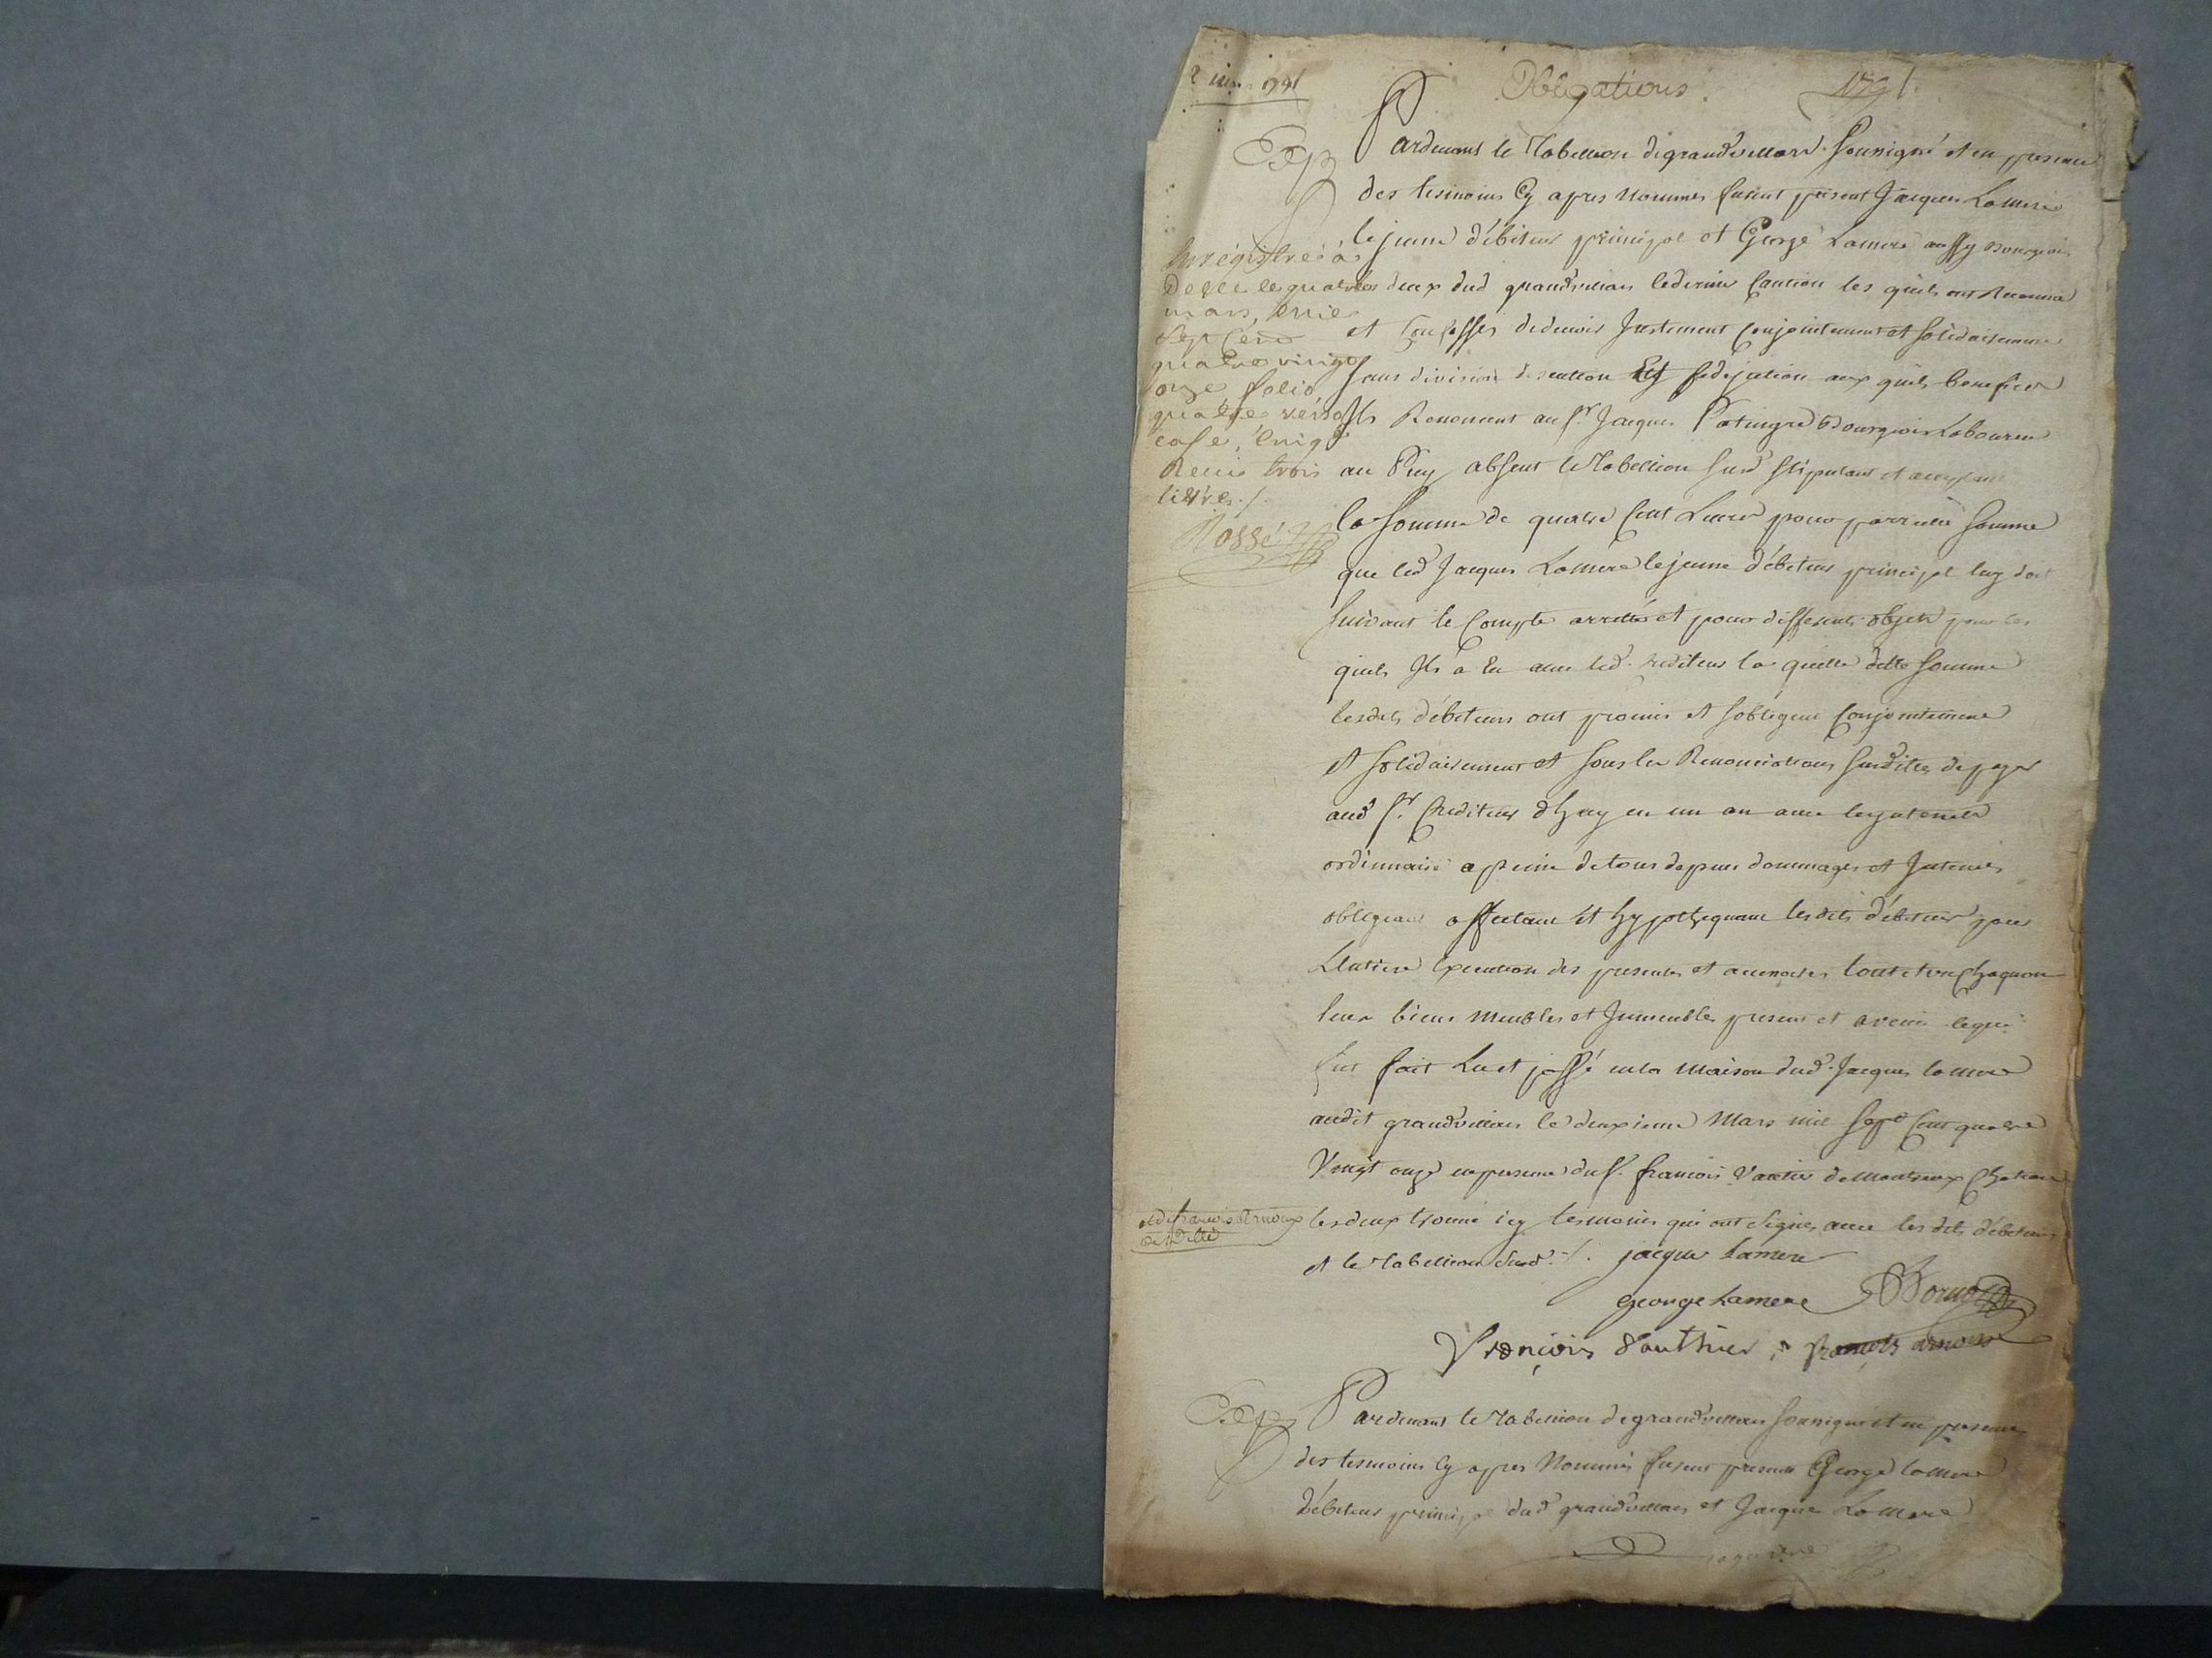 2 mars 1791
Obligations. 1791.
Exp
Pardevant le Tabellion de grandvillars soussigné et en presence
des tesmoins cy apres nommes furent present Jacques Lamere
le jeune débiteur principal et George Lamere aussy Bourgeois
les deux dud grandvillars le dernier caution les quels ont Reconnu
et confesses de devoir Justement conjointement et solidairement
sans division discution et fidejution aux quels benefices
Ils Renoncent au sr. Jacques Bourgeois Laboureur
au Puy absent le Tabellion susd stipulant et acceptant
la somme de quatre Cent Livres pour pareille somme
que led Jacques Lamere le jeune débiteur principal luy doit
suivant le Compte arretté et pour differents objets pour les
quels Ils a Eu avec led. crediteur la quelle ditte somme
lesdits débiteurs ont promis et s'obligent conjointement
et solidairement et sous les Renonciations susdittes de payer
aud sr. Crediteur d'huy en un an avec les interests
ordinnaire a peine de tous depens dommages et Interests
obligeant affectant et hypothequant les dits débiteurs pour
L'Entiere Execution des presentes et accessoires tout et un chaqun
leur biens meubles et Immeubles present et avenir lequel
fut fait Lu et passé en la maison dud. Jacques lamere
audit grandvillars le deuxieme Mars mil sept Cent quatre
Vingt onze en presence du s. francois Vautier de Montreux Chateau
les deux trouvé icy tesmoins qui ont signes avec les dits débiteurs
et le Tabellion susd. /. jacque lamere
george Lamere
François Vauthier francois arnoux
Enrégistré à
Delle le quatre
mars, mil
sept cent
quatre vingt
onze folio
quatre verso
case, cinq
Reçu trois
livres ./.
Rossé
et de francois Arnoux
de Delle
Exp
Pardevant le Tabellion de grandvillars soussigné et en presence
des tesmoins cy apres Nommés furent present George lamere
débiteur principal dud grandvillars et Jacque Lamere